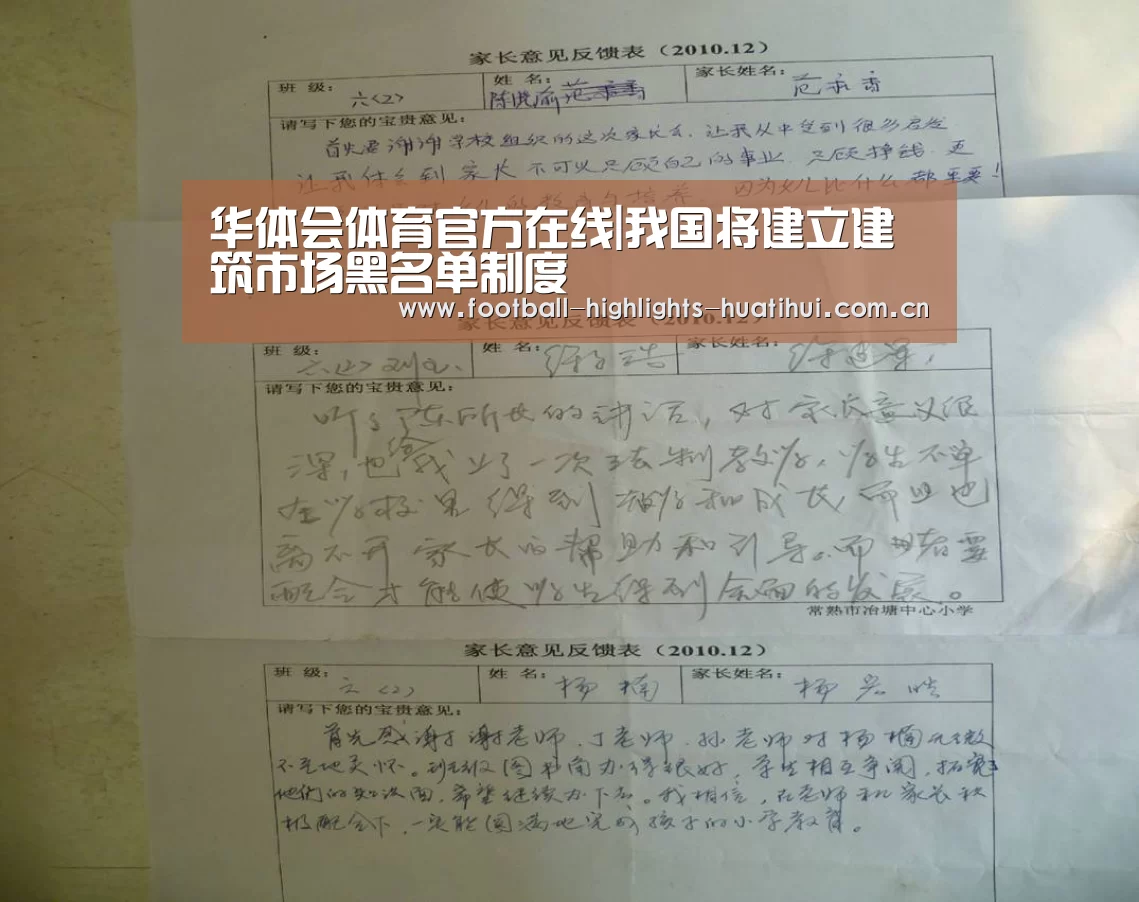 家长意见反馈表（2010.12）
班 级： 六(2) 姓 名： 家长姓名： 范
请写下您的宝贵意见：
首先要谢谢学校组织的这次家长会，让我从中受到很多启发
让我体会到家长不可以只顾自己的事业，只顾挣钱，更
因为女儿比什么都重要！
华体会体育官方在线|我国将建立建
筑市场黑名单制度
www.football-highlights-huatihui.com.cn
家长意见反馈表（2010.12）
班 级： 姓 名： 家长姓名：
请写下您的宝贵意见：
听了陈所长的讲话，对家长意义很
深，也给我上了一次法制教育，学生不单
在学校里得到 和成长，而且也
离不开家长的帮助和引导。而 者要
配合才能使学生得到全面的发展。
常熟市冶塘中心小学
家长意见反馈表（2010.12）
班 级： 六(2) 姓 名： 杨楠 家长姓名： 杨
请写下您的宝贵意见：
首先感谢谢老师、丁老师、孙老师对杨楠无微
不至地关怀。班级图书角办得很好，学生相互争阅，拓宽了
他们的知识面，希望继续办下去。我相信，在老师和家长积
极配合下，一定能圆满地完成孩子的小学教育。